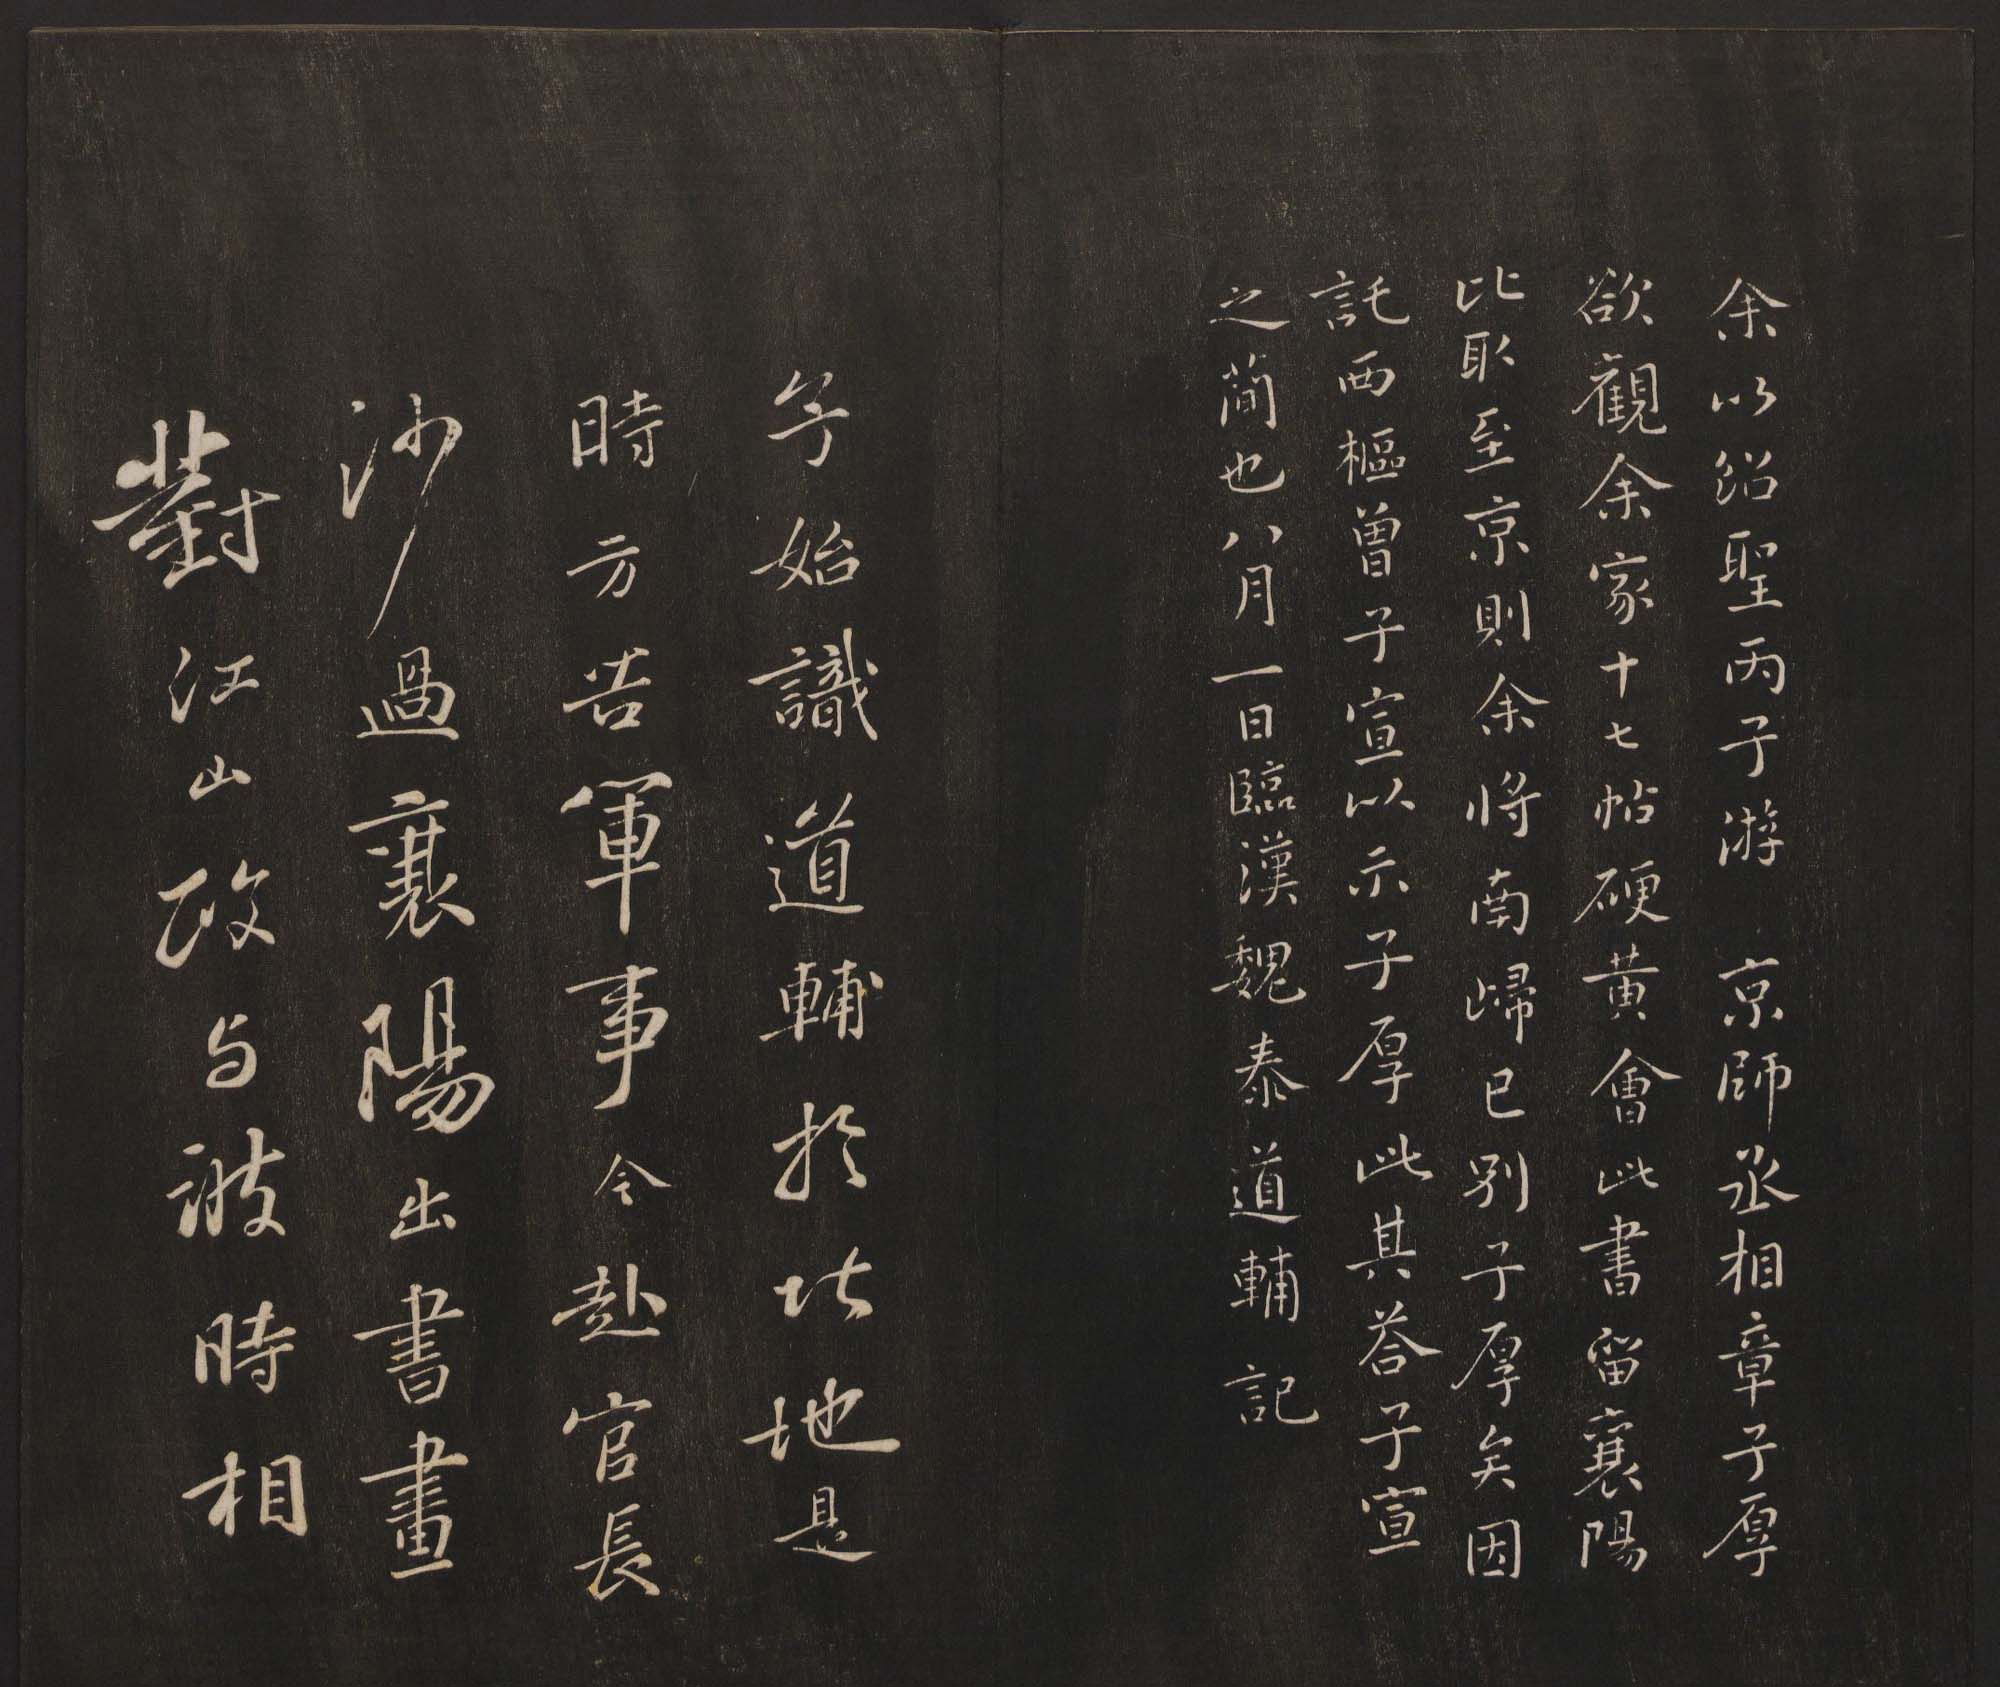 余以紹聖丙子游 京師丞相章子厚
欲觀余家十七帖硬黃會此書留襄陽
比取至京則余將南歸已別子厚矣因
託西樞曾子宣以示子厚此其荅子宣
之簡也八月一日臨漢魏泰道輔記
午始識道輔於此地是
時方苦軍事今赴官長
沙過襄陽出書畫
對江山改与波時相